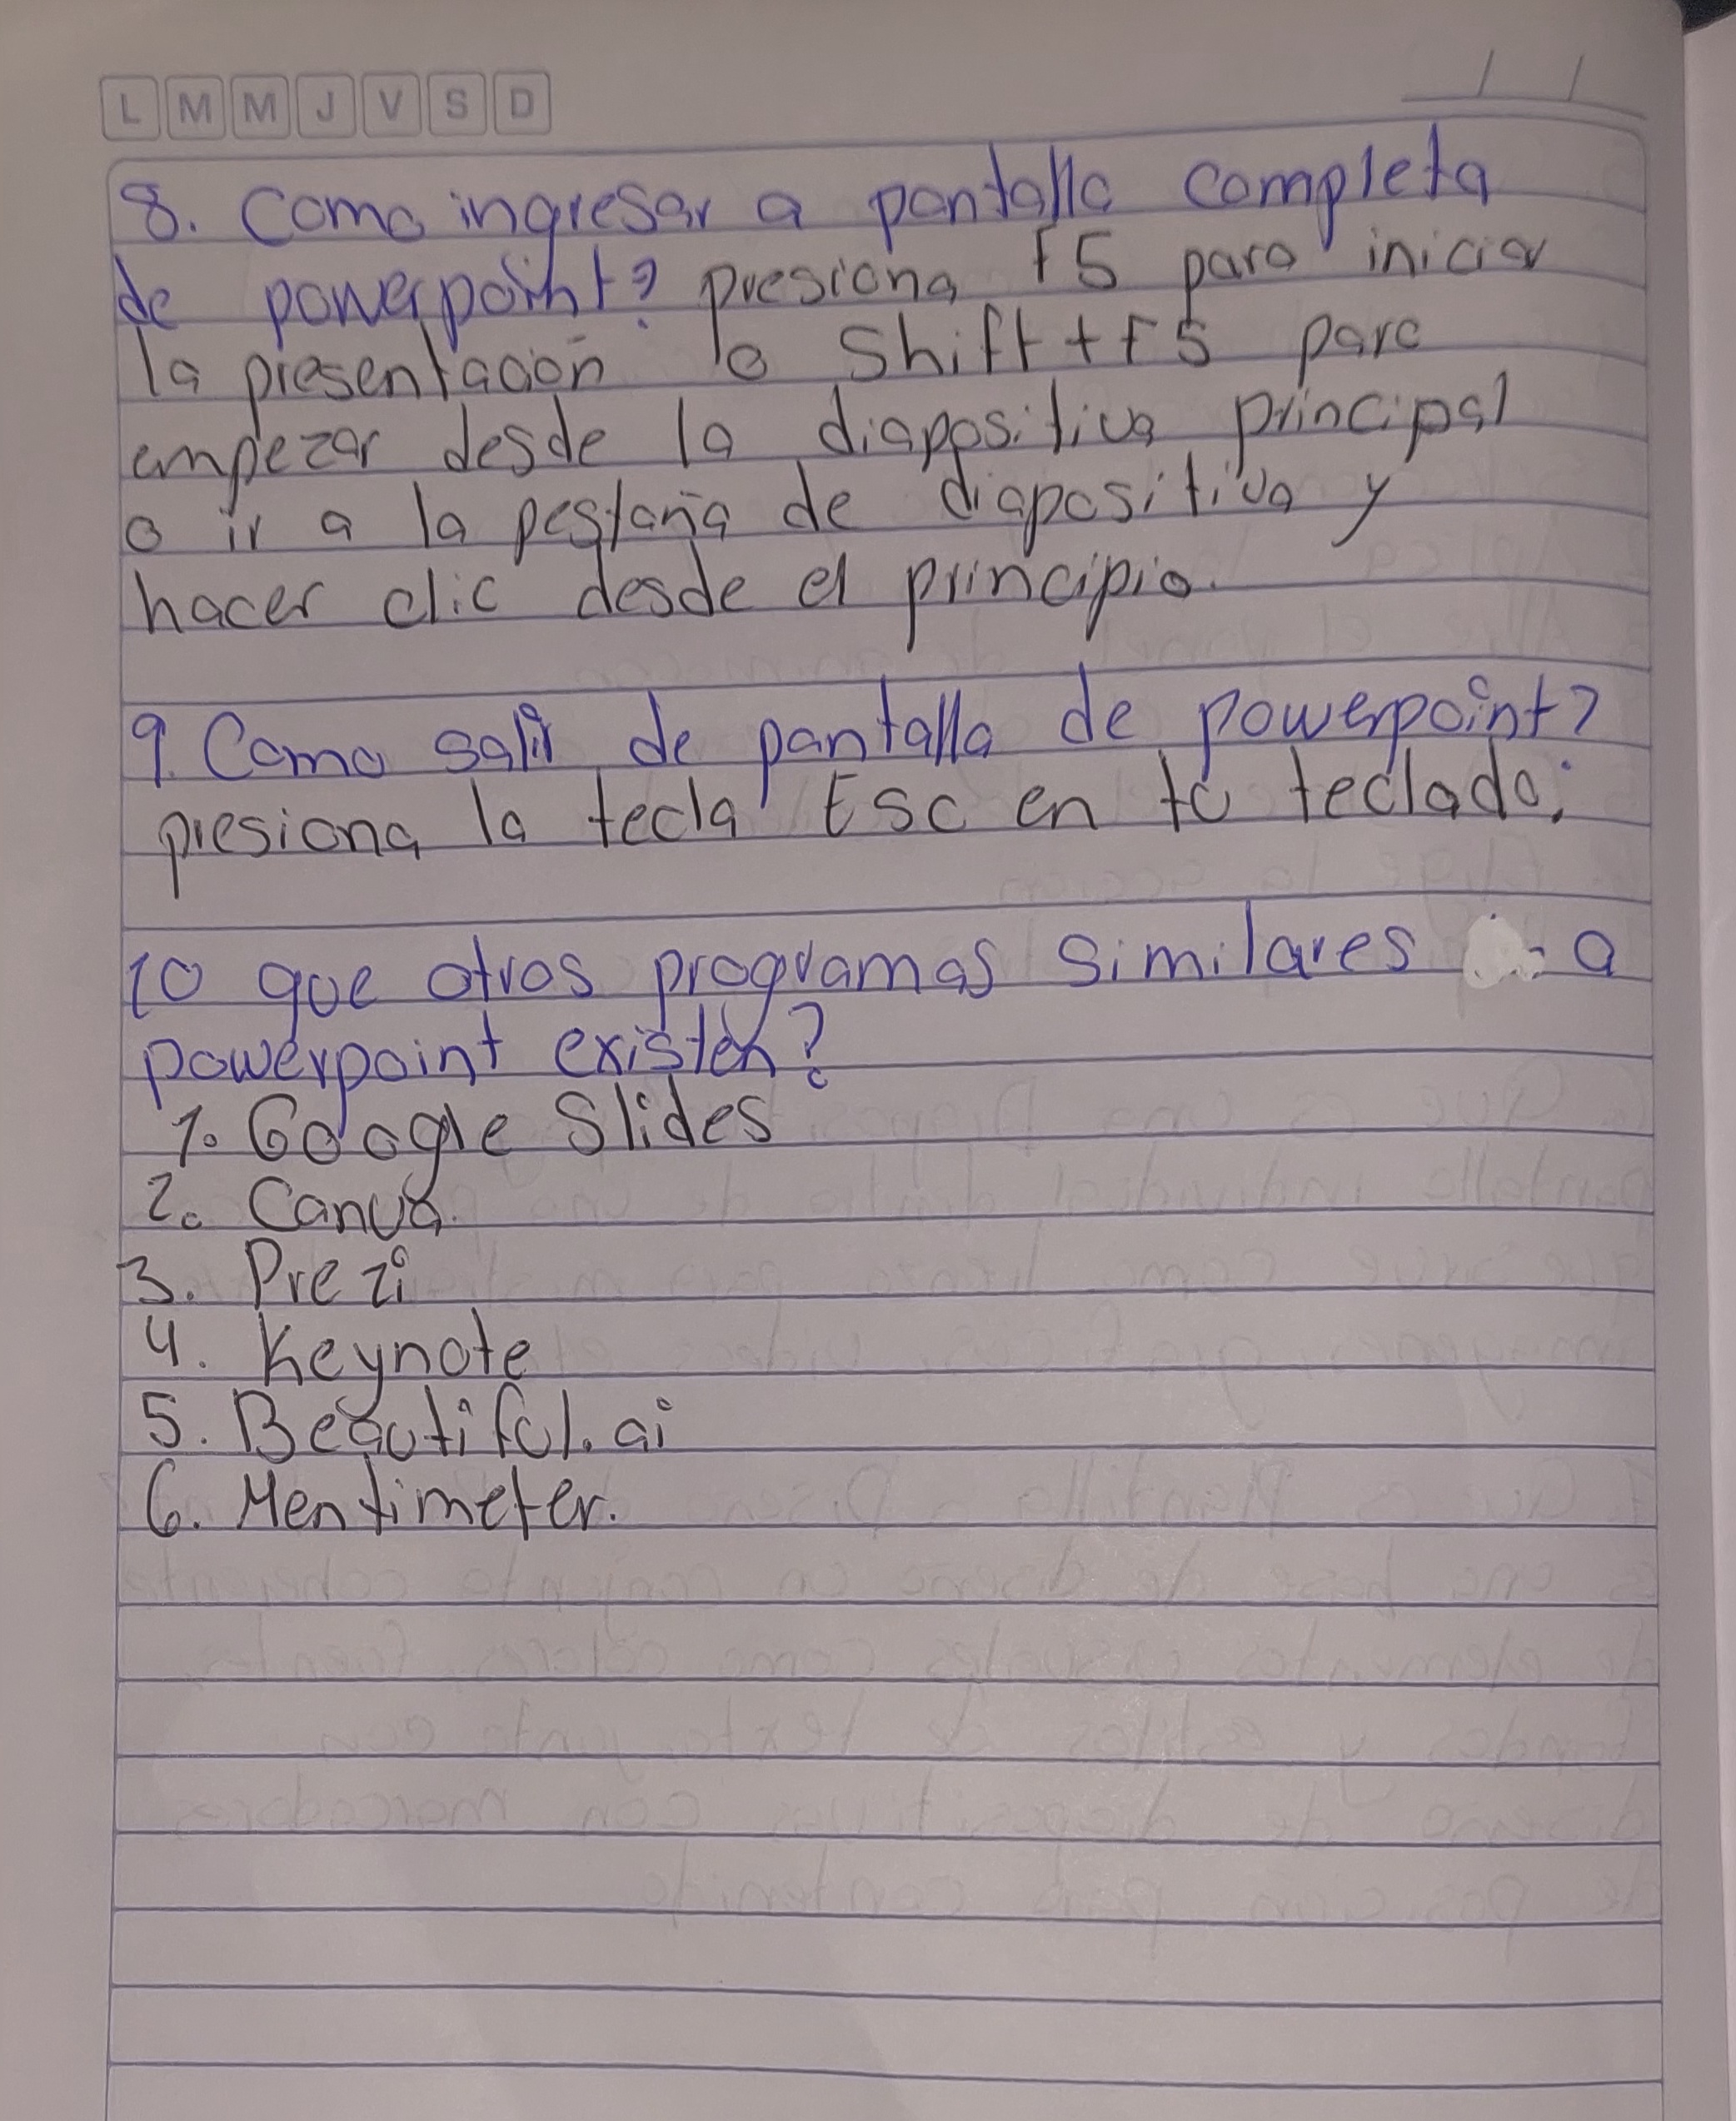 L M M J V S D
8. Como ingresar a pantalla completa
de powerpoint? presiona F5 para iniciar
la presentación o Shift + F5 para
empezar desde la diapositiva principal
o ir a la pestaña de diapositiva y
hacer clic desde el principio.
9. Como salir de pantalla de powerpoint?
presiona la tecla Esc en tu teclado.
10 que otros programas similares a
powerpoint existen?
1. Google Slides
2. Canva.
3. Prezi
4. Keynote
5. Beautiful.ai
6. Mentimeter.